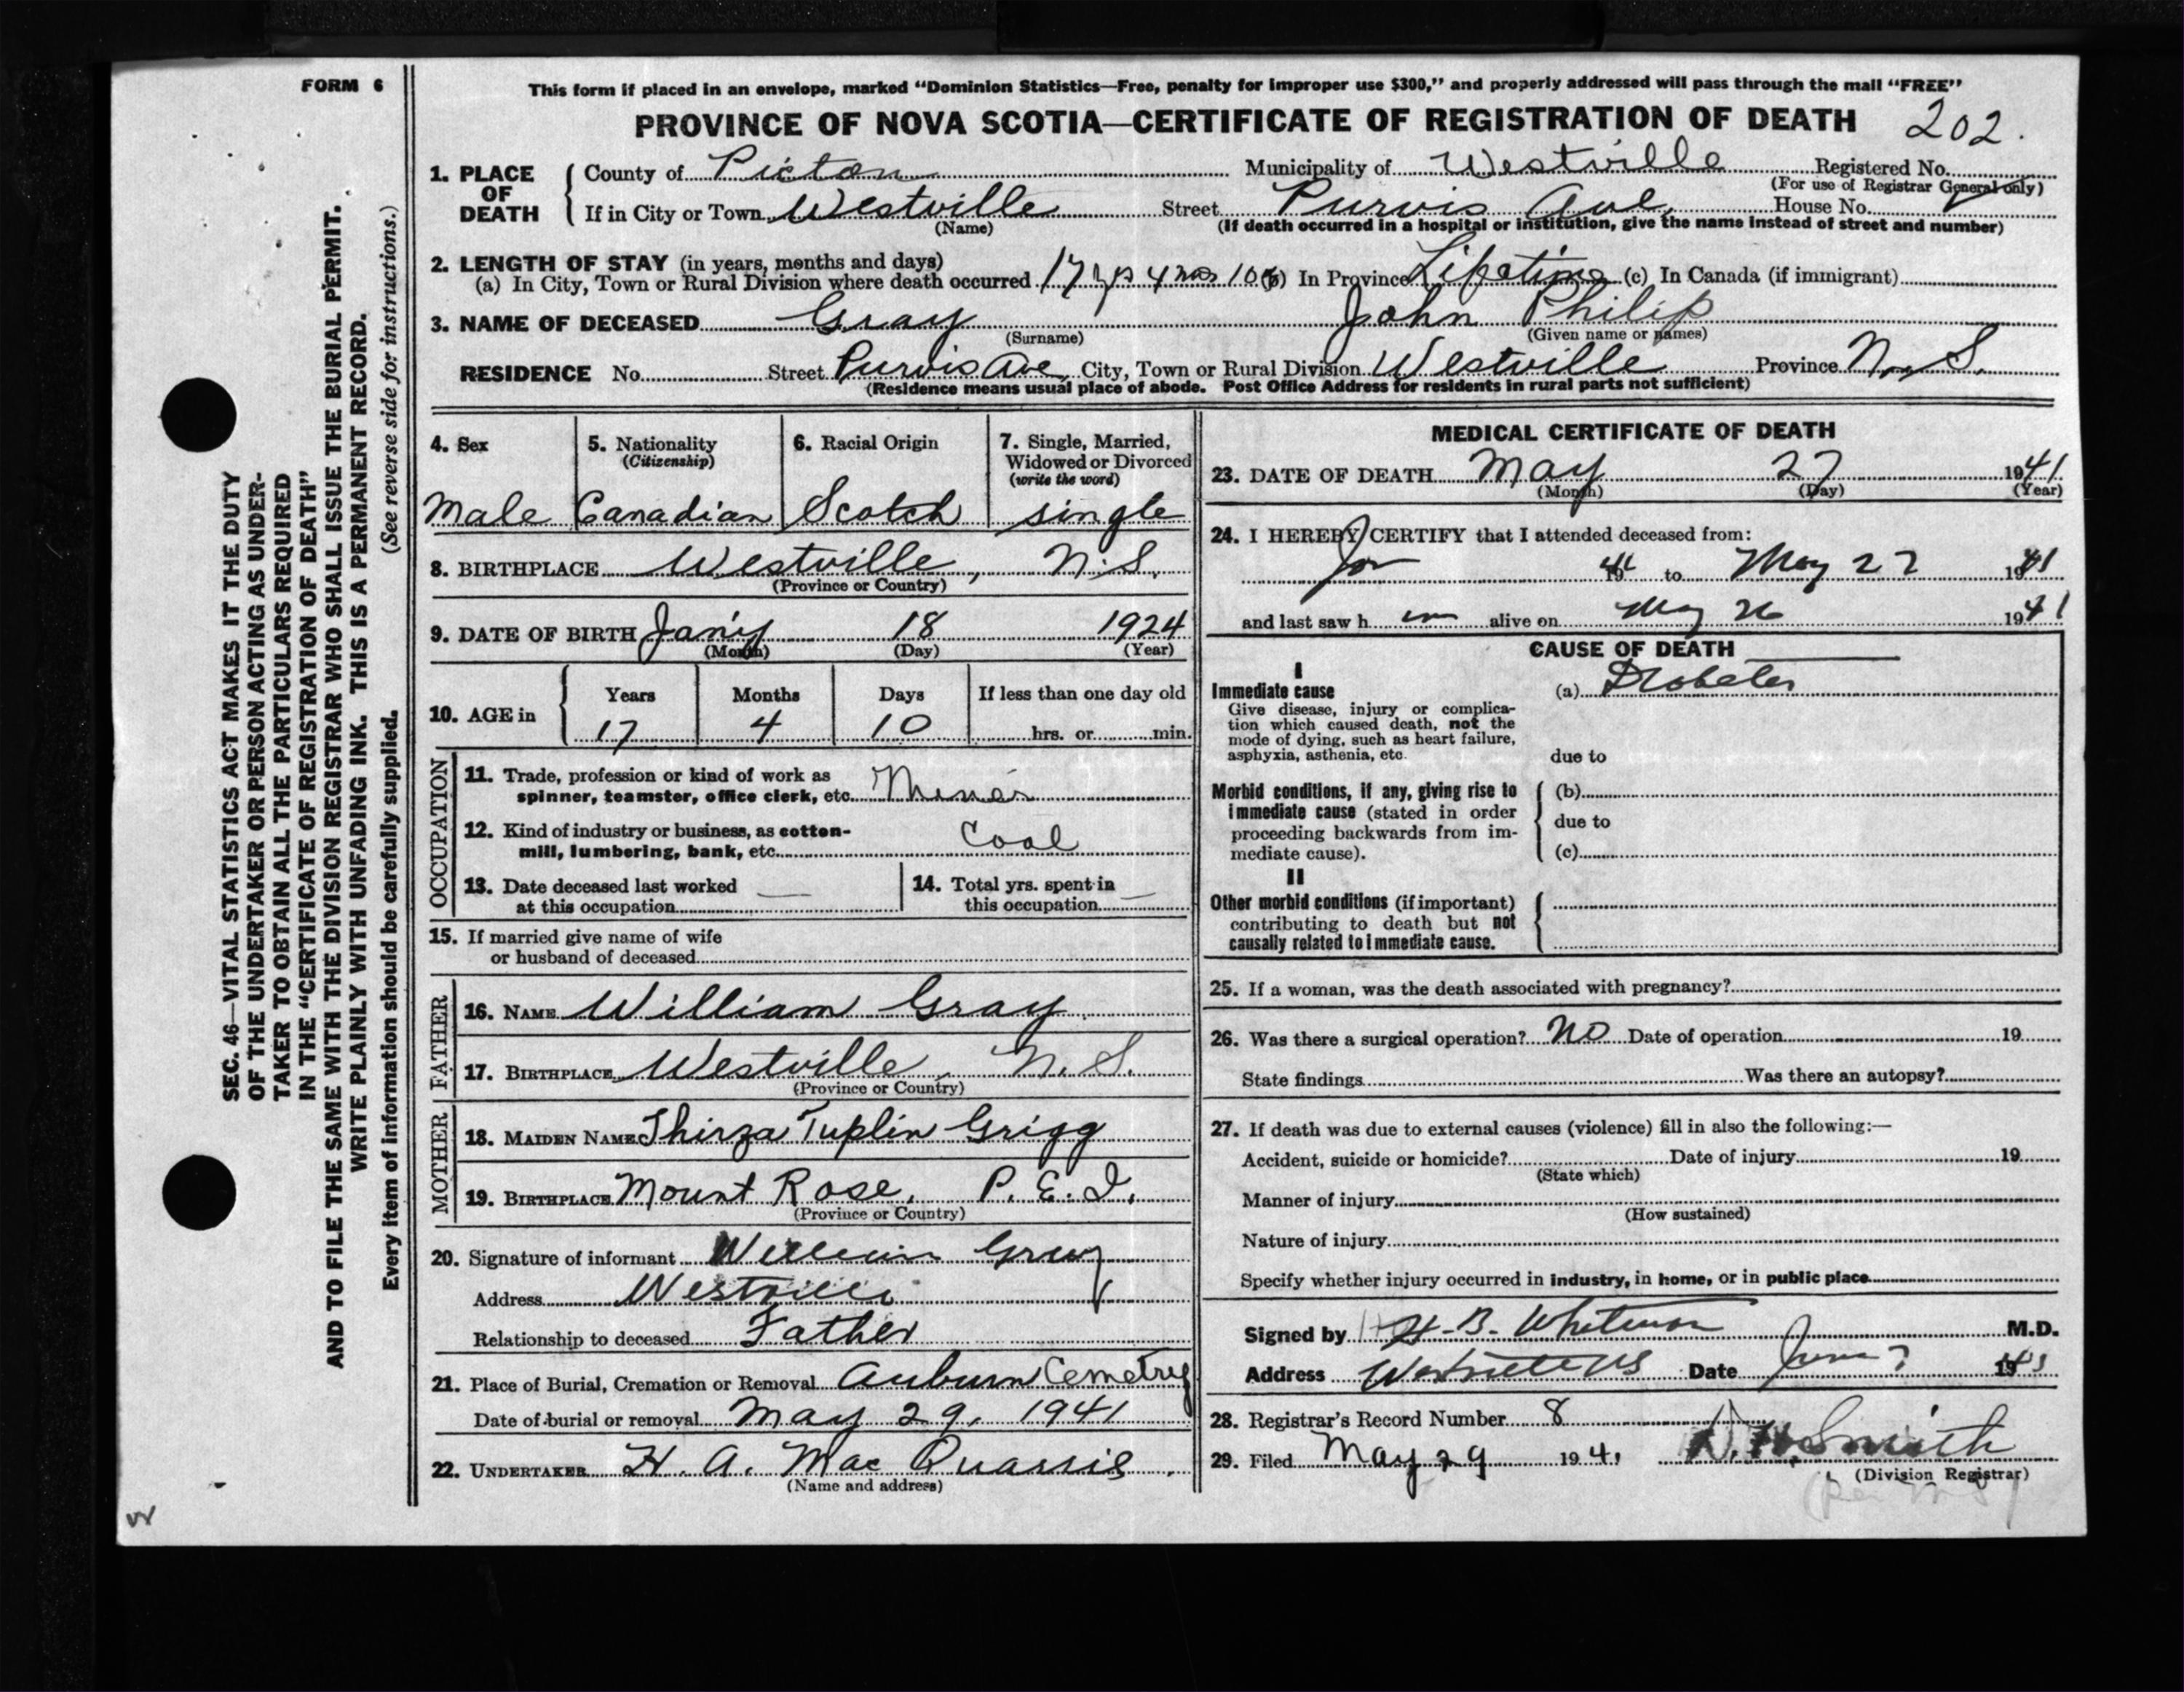 FORM 6
This form if placed in an envelope, marked "Dominion Statistics—Free, penalty for improper use $300," and properly addressed will pass through the mail "FREE"
PROVINCE OF NOVA SCOTIA—CERTIFICATE OF REGISTRATION OF DEATH 202.
1. PLACE OF DEATH
County of Pictou Municipality of Westville Registered No.
(For use of Registrar General only)
If in City or Town Westville Street Purvis Ave House No.
(Name) (If death occurred in a hospital or institution, give the name instead of street and number)
2. LENGTH OF STAY (in years, months and days)
(a) In City, Town or Rural Division where death occurred 17 yrs 4 mos 10 (b) In Province Lifetime (c) In Canada (if immigrant)
3. NAME OF DECEASED Gray John Philip
(Surname) (Given name or names)
RESIDENCE No. Street Purvis Ave City, Town or Rural Division Westville Province N.S.
(Residence means usual place of abode. Post Office Address for residents in rural parts not sufficient)
4. Sex
Male
5. Nationality
(Citizenship)
Canadian
6. Racial Origin
Scotch
7. Single, Married,
Widowed or Divorced
(write the word)
single
8. BIRTHPLACE Westville, N.S.
(Province or Country)
9. DATE OF BIRTH Jan'y 18 1924
(Month) (Day) (Year)
10. AGE in
Years Months Days If less than one day old
17 4 10 hrs. or min.
OCCUPATION
11. Trade, profession or kind of work as
spinner, teamster, office clerk, etc. Miner
12. Kind of industry or business, as cotton-
mill, lumbering, bank, etc. Coal
13. Date deceased last worked —
at this occupation
14. Total yrs. spent in —
this occupation
15. If married give name of wife
or husband of deceased
FATHER
16. NAME William Gray
17. BIRTHPLACE Westville, N.S.
(Province or Country)
MOTHER
18. MAIDEN NAME Thirza Tuplin Grigg
19. BIRTHPLACE Mount Rose, P.E.I.
(Province or Country)
20. Signature of informant William Gray
Address Westville
Relationship to deceased Father
21. Place of Burial, Cremation or Removal Auburn Cemetry
Date of burial or removal May 29, 1941
22. UNDERTAKER H. A. MacQuarrie
(Name and address)
MEDICAL CERTIFICATE OF DEATH
23. DATE OF DEATH May 27 1941
(Month) (Day) (Year)
24. I HEREBY CERTIFY that I attended deceased from:
Jan 1941 to May 27 1941
and last saw h im alive on May 26 1941
CAUSE OF DEATH
I
Immediate cause
Give disease, injury or complica-
tion which caused death, not the
mode of dying, such as heart failure,
asphyxia, asthenia, etc.
(a) Diabetes
due to
Morbid conditions, if any, giving rise to
immediate cause (stated in order
proceeding backwards from im-
mediate cause).
(b)
due to
(c)
II
Other morbid conditions (if important)
contributing to death but not
causally related to immediate cause.
25. If a woman, was the death associated with pregnancy?
26. Was there a surgical operation? No Date of operation 19
State findings Was there an autopsy?
27. If death was due to external causes (violence) fill in also the following:—
Accident, suicide or homicide? Date of injury 19
(State which)
Manner of injury
(How sustained)
Nature of injury
Specify whether injury occurred in industry, in home, or in public place
Signed by H. B. Whitman M.D.
Address Westville NS Date June 1941
28. Registrar's Record Number 8
29. Filed May 29 1941 Smith
(Division Registrar)
SEC. 46—VITAL STATISTICS ACT MAKES IT THE DUTY
OF THE UNDERTAKER OR PERSON ACTING AS UNDER-
TAKER TO OBTAIN ALL THE PARTICULARS REQUIRED
IN THE "CERTIFICATE OF REGISTRATION OF DEATH"
AND TO FILE THE SAME WITH THE DIVISION REGISTRAR WHO SHALL ISSUE THE BURIAL PERMIT.
WRITE PLAINLY WITH UNFADING INK. THIS IS A PERMANENT RECORD.
Every item of information should be carefully supplied. (See reverse side for instructions.)